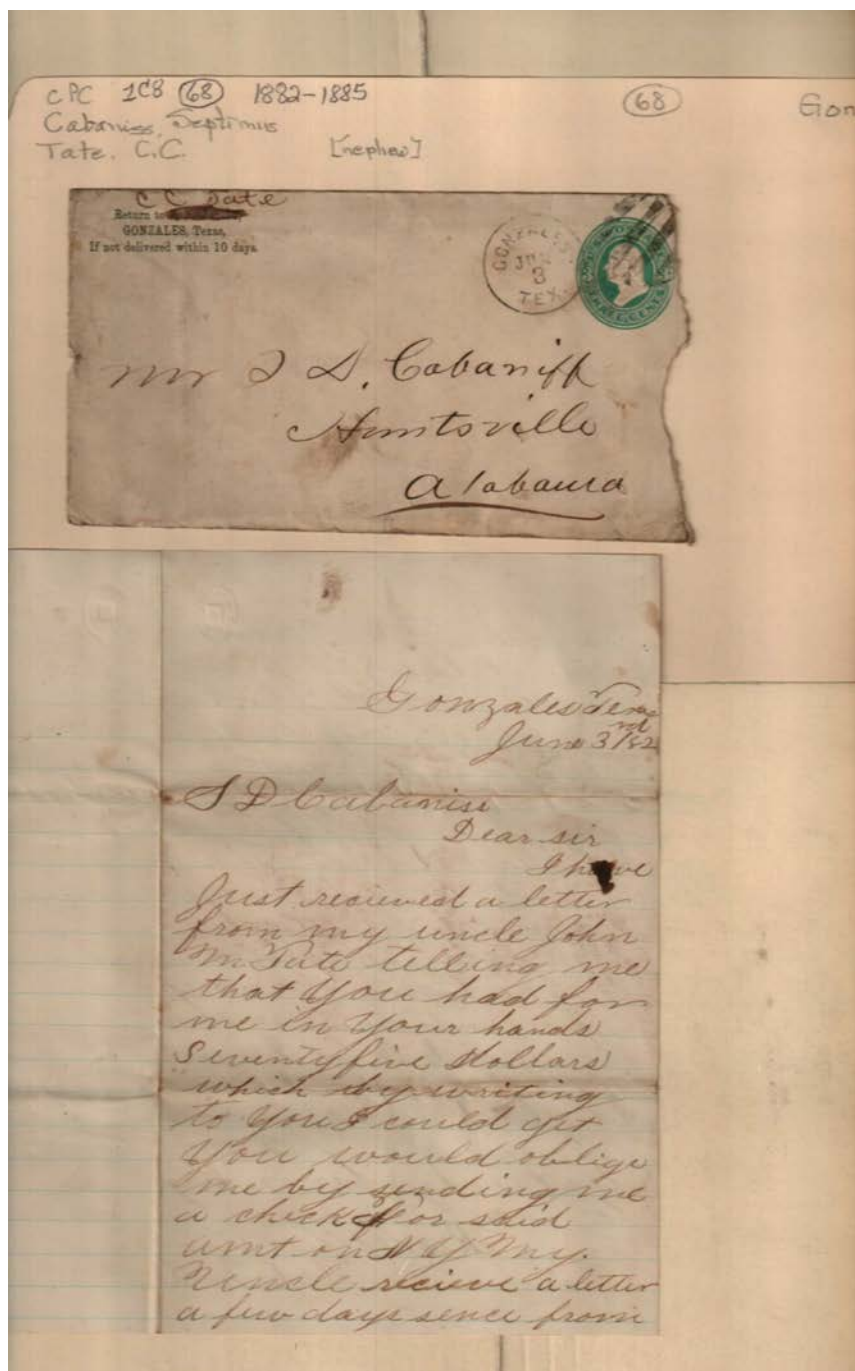 CPC 1C8 68 1882-1885
Cabaniss, Septimus
Tate, C.C. [nephew]
68
Gon
C C Tate
Return to
GONZALES, Texas,
If not delivered within 10 days.
GONZALES
JUN
3
TEX
THREE CENTS
Mr S D. Cabaniss
Huntsville
Alabama
Gonzales Texas
June 3rd/82
S D Cabaniss
Dear sir
I have
Just recieved a letter
from my uncle John
M. Tate telling me
that You had for
me in Your hands
Seventy five Dollars
which by writing
to You I could get
You would oblige
me by sending me
a check for said
amt on N Y My.
Uncle recieve a letter
a few days sence from